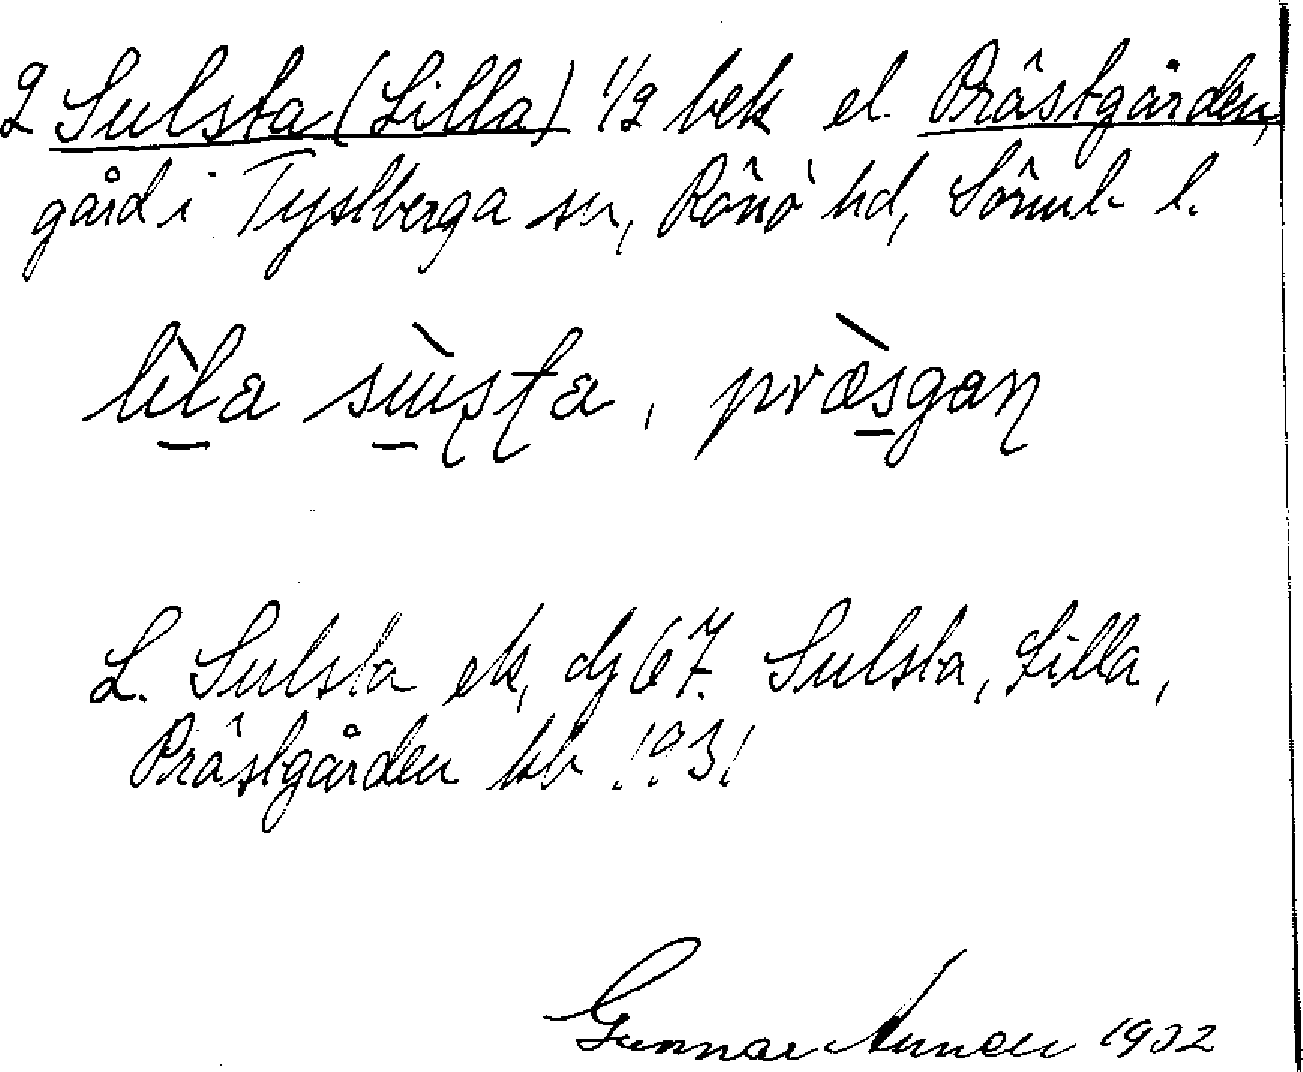 2 Sulsta (Lilla) 1/2 bek el. Prästgården,
gård i Tystberga sn, Rönö hd, Sörml. l.
lìla sùsta, præ̀sgan
L. Sulsta ek, dj 67. Sulsta, Lilla,
Prästgården kb 1931
Gunnar 1932